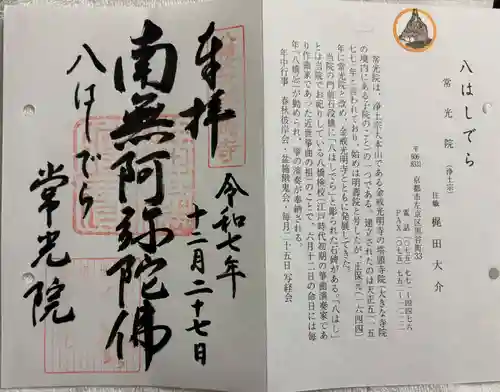 奉拝
令和七年
十二月二十七日
南無阿弥陀佛
八はしでら
常光院
八はしでら
常光院（浄土宗）
住職 梶田大介
京都市左京区黒谷町33
常光院は、浄土宗大本山である金戒光明寺の塔頭寺院（大きな寺院
の境内にある子院の一つである。建立されたのは天正五（一五
七七）年と言われており、始めは明善院と号したが、正保元（一六四四）
年に常光院と改め、金戒光明寺とともに発展してきた。
当院の門前石段横に「八はしでら」と彫られた石碑がある。「八はし」
とは当院でお祀りしている八橋検校（江戸時代初期の箏曲演奏家であ
り作曲家であった近世箏曲の祖）のことで、六月十二日の命日には毎
年「八橋忌」が勤められ、箏の演奏が奉納される。
年中行事 春秋彼岸会・盆施餓鬼会・毎月二十五日写経会